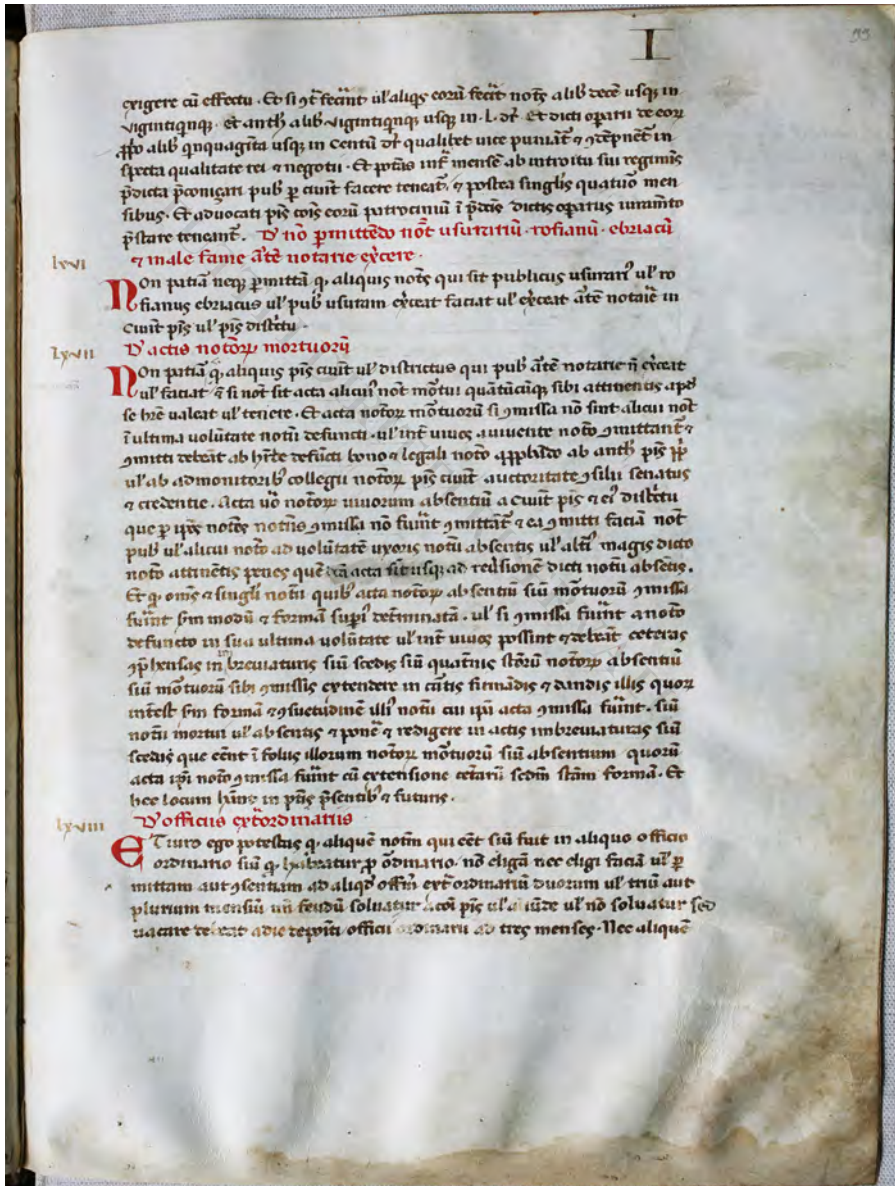 I
99
exigere cū effectu · Et si ɔͭ fecint ul' aliqs eorū fecit notͦs a lib decē usqꝫ in
viginti qnqꝫ · et anthͦs a lib viginti qnqꝫ usqꝫ in · L · dr̄ · Et dicti opͣrii de eoꝝ
alib qnquagīta usqꝫ in centū dr̄ qualibet vice puniāt ⁊ ɔdēpnēt in
specta qualitate rei ⁊ negotii · Et potās inf mensē ab introitu sui regimīs
p̄dicta p̄coniçari pub ꝑ civit facere teneat̄ · ⁊ postea singlīs quatuō men
sibus · Et advocati pis cōis eorū patrociniū ī dictis opatus iuramto
p̄stare teneant̄ · D̓ nō ꝑmittēdo not usurariū · rofianū · ebriacū
⁊ male fame artē notarie excere ·
lxvi
Non patiā neqꝫ ꝑmittā q aliquis notͦs qui sit publicus usurari ul' ro
fianus ebriacus ul' pub usuram exceat faciat ul' exceat artē notarie in
civit pis ul' pis districtu ·
lxvii
D̓ actis notoꝝ mortuorū
Non patiā q aliquis pis civit ul' districtus qui pub artē notarie n̄ exceat
ul' faciat ⁊ si not sit acta alicui not mortui quātūcūqꝫ sibi attinentis apd
se hr̄e valeat ul' tenere · Et acta notoꝝ mortuorū si ɔmissa nō sint alicui not
ī ultima volūtate notii defuncti · ul' int vivos a vivente noto ɔmittant̄ ⁊
ɔmitti debeāt ab hrde defūcti bono ⁊ legali noto ab anthͦs pis
ul' ab admonitorib collegii notoꝝ pis civit auctoritate ɔsilii senatus
⁊ credentie · Acta vō notoꝝ vivorum absentiū a civit pis ⁊ ei districtu
que ꝑ ip̄os notͦs notiis ɔmissa nō fuint ɔmittāt ⁊ ea ɔmitti faciā not
pub ul' alicui noto ad volūtatē uxoris notii absentis ul' alti magis dicto
noto attinētis penes quē acta sit usqꝫ ad reversionē dicti notii absētis ·
Et q om̄s ⁊ singli notii quib acta notoꝝ absentiū siū mortuorū ɔmissa
fuint sm modū ⁊ formā supi det̄minatā · ul' si ɔmissa fuint a noto
defuncto in sua ultima volūtate ul' int vivos possint ⁊ debeāt ceteras
ɔp̄hensas in breviaturis siū scedis siū quat̄nis storū notoꝝ absentiū
siū mortuorū sibi ɔmissis extendere in cārtis firmādis ⁊ dandis illis quoꝝ
intest sm formā ⁊ ɔsuetudinē illi notii cui ipa acta ɔmissa fuint · siū
notii mortui ul' absentis ⁊ ponē ⁊ redigere in actis imbreviaturas siū
scedis que cent ī foliis illorum notoꝝ mortuorū siū absentium quorū
acta ipi noto ɔmissa fuint cū extensione cetarū sedm stām formā · Et
hec locum hn̄t in ptis p̄sentib ⁊ futuris ·
lxviii
D̓ officiis extͣordinariis ·
ET iuro ego potestas q aliquē notm qui cēt siū fuit in aliquo officio
ordinario siū q hr̄atur ꝑ ōdinario · nō eligā nec eligi faciā ul' ꝑ
mittam aut ɔsentiam ad aliqd offm extͣordinariū duorum ul' triū aut
plurium mensiū un feudū solvatur a cōi pis ul' aliūde ul' nō solvatur sed
vacare debeat a die depoiti officii ordinarii ad tres menses · Nec aliquē